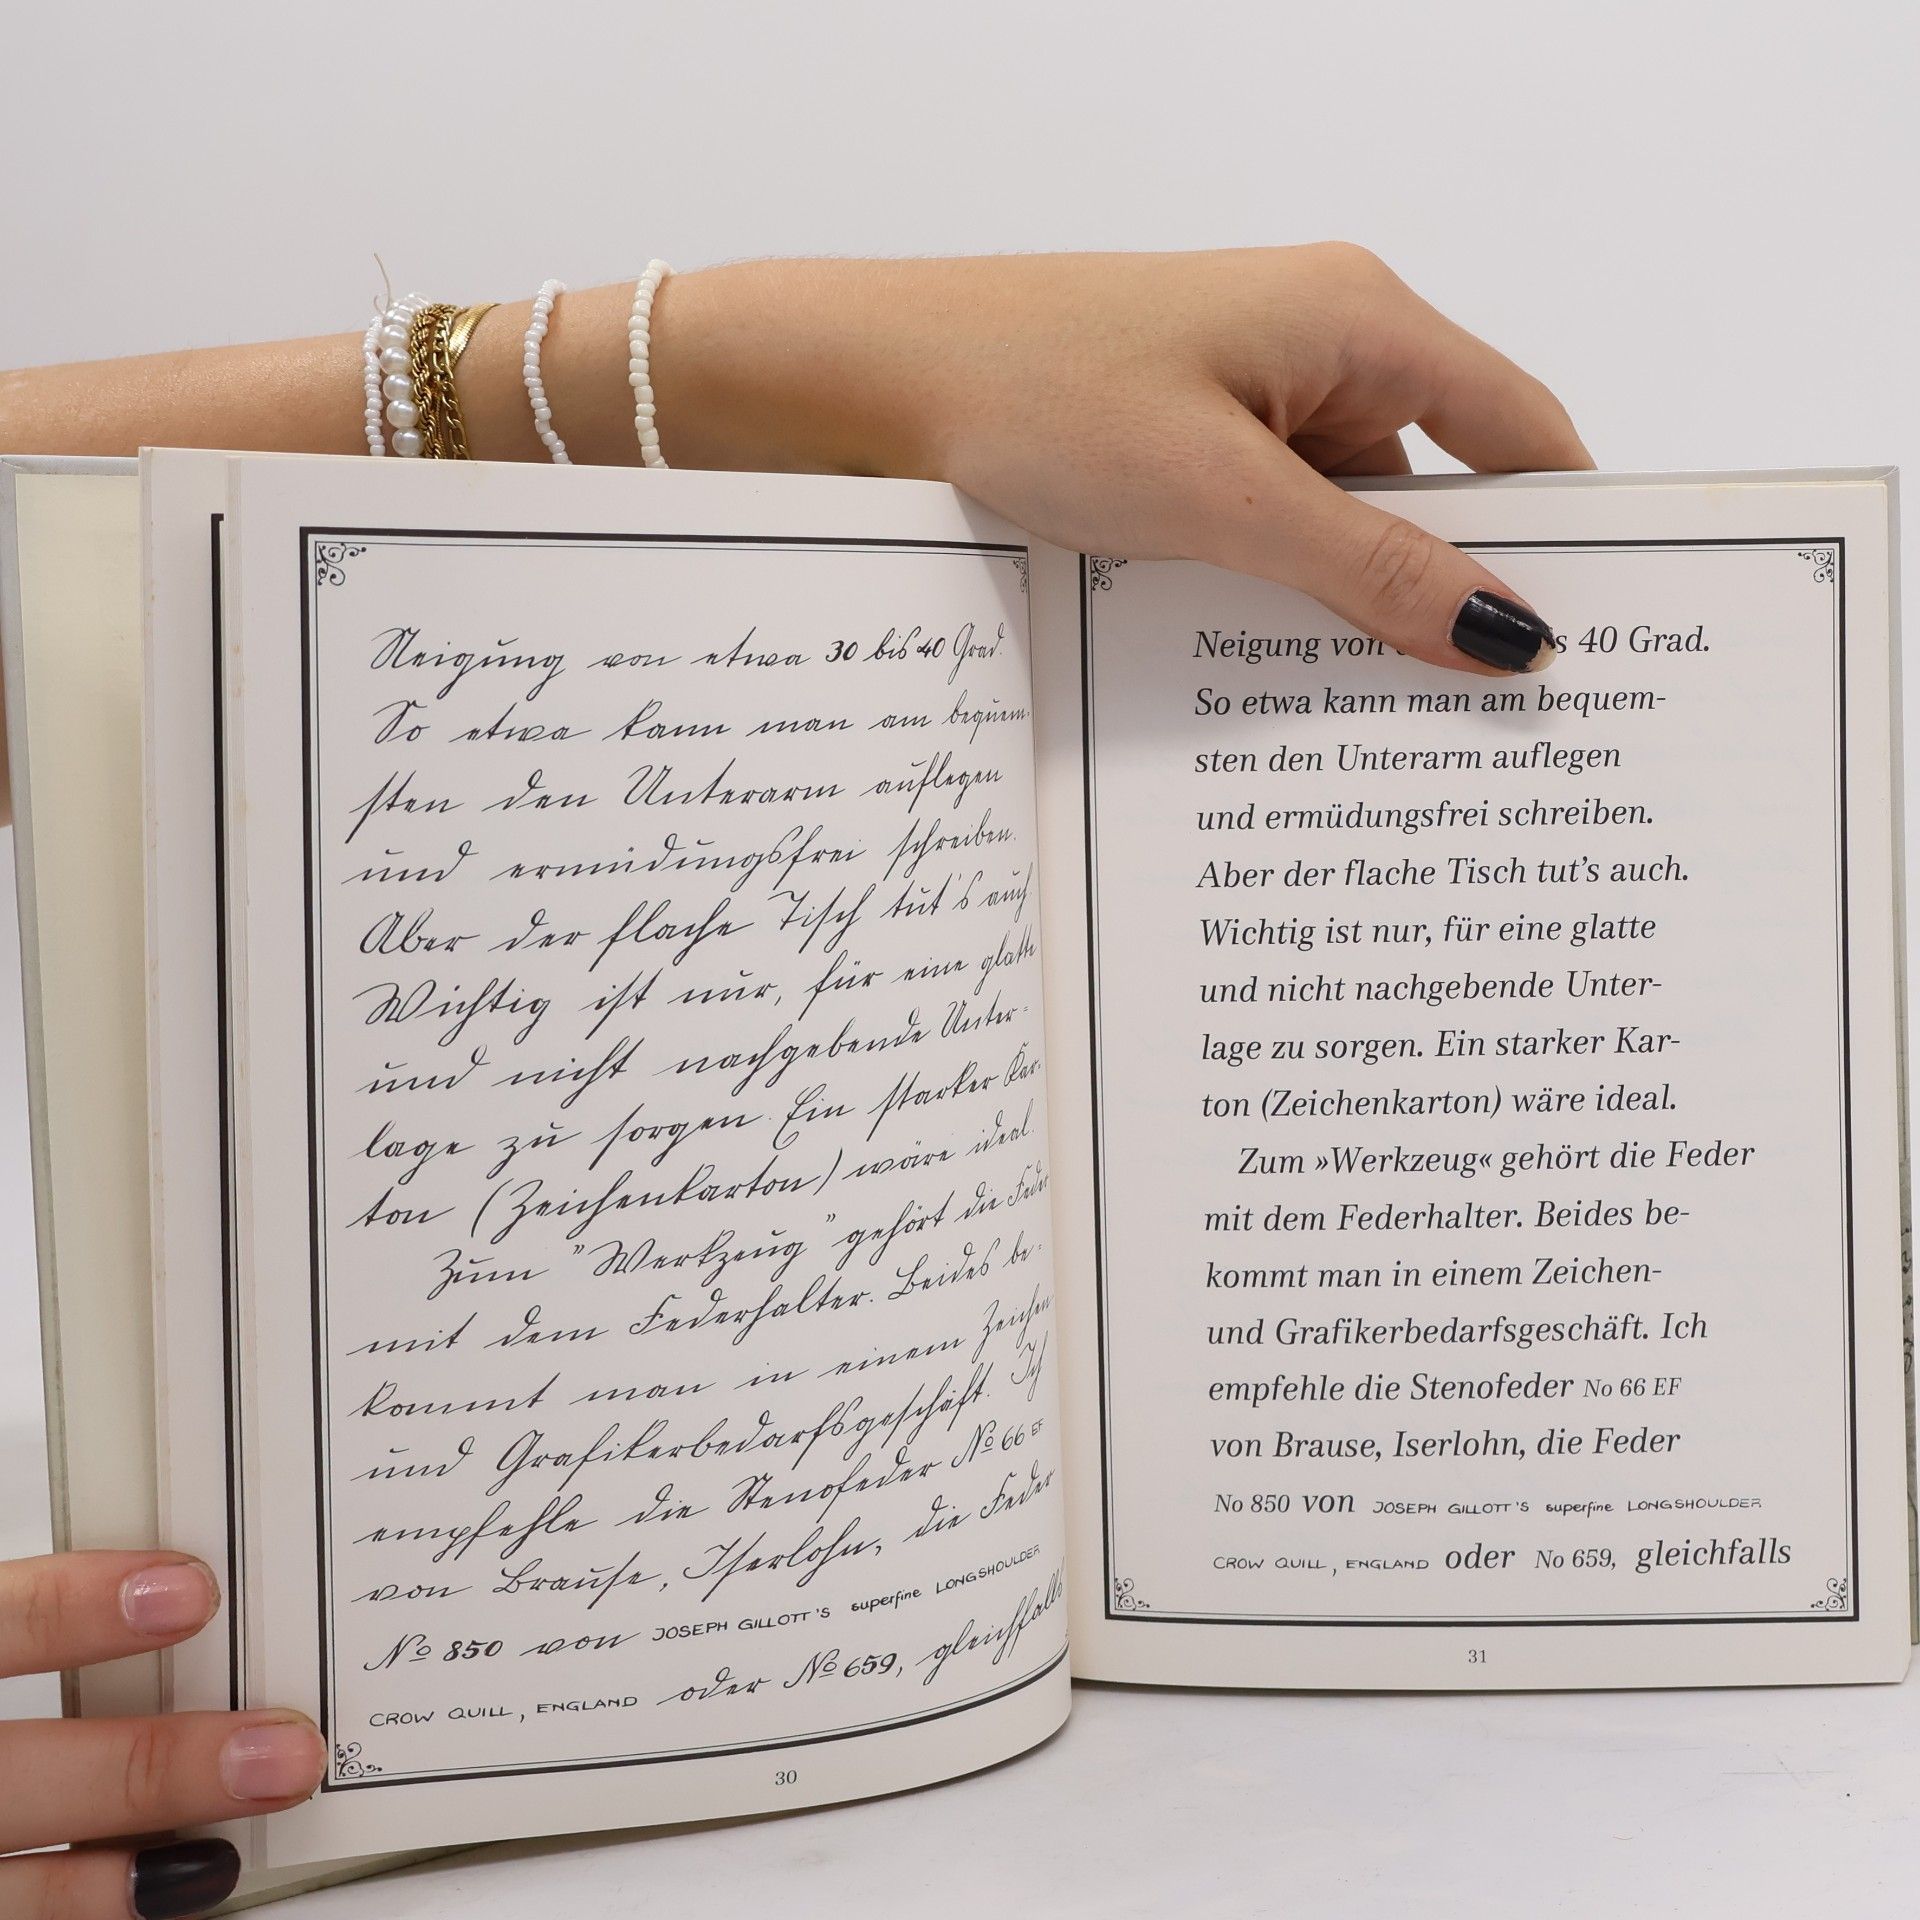 Neigung von etwa 30 bis 40 Grad.
So etwa kann man am bequem-
sten den Unterarm auflegen
und ermüdungsfrei schreiben.
Aber der flache Tisch tut's auch.
Wichtig ist nur, für eine glatte
und nicht nachgebende Unter-
lage zu sorgen. Ein starker Kar-
ton (Zeichenkarton) wäre ideal.
Zum "Werkzeug" gehört die Feder
mit dem Federhalter. Beides be-
kommt man in einem Zeichen
und Grafikerbedarfsgeschäft. Ich
empfehle die Stenofeder No 66 EF
von Brause, Iserlohn, die Feder
No 850 von JOSEPH GILLOTT'S superfine LONGSHOULDER
CROW QUILL, ENGLAND oder No 659, gleichfalls
30
Neigung von s 40 Grad.
So etwa kann man am bequem-
sten den Unterarm auflegen
und ermüdungsfrei schreiben.
Aber der flache Tisch tut’s auch.
Wichtig ist nur, für eine glatte
und nicht nachgebende Unter-
lage zu sorgen. Ein starker Kar-
ton (Zeichenkarton) wäre ideal.
Zum »Werkzeug« gehört die Feder
mit dem Federhalter. Beides be-
kommt man in einem Zeichen-
und Grafikerbedarfsgeschäft. Ich
empfehle die Stenofeder No 66 EF
von Brause, Iserlohn, die Feder
No 850 von JOSEPH GILLOTT'S superfine LONGSHOULDER
CROW QUILL, ENGLAND oder No 659, gleichfalls
31